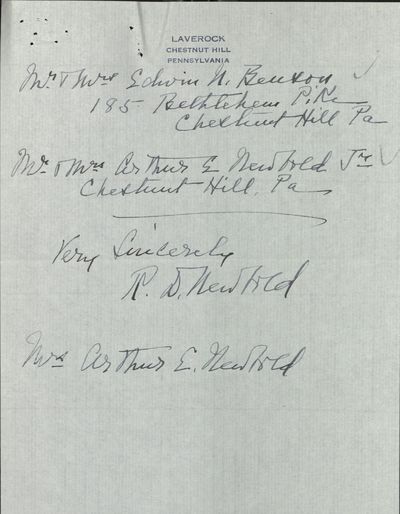 LAVEROCK
CHESTNUT HILL
PENNSYLVANIA
Mr & Mrs Edwin N. Benson ✓
185 Bethlehem Pike
Chestnut Hill Pa
Mr & Mrs Arthur E Newbold Jr ✓
Chestnut Hill, Pa
Very Sincerely
R. D. Newbold
Mrs Arthur E. Newbold